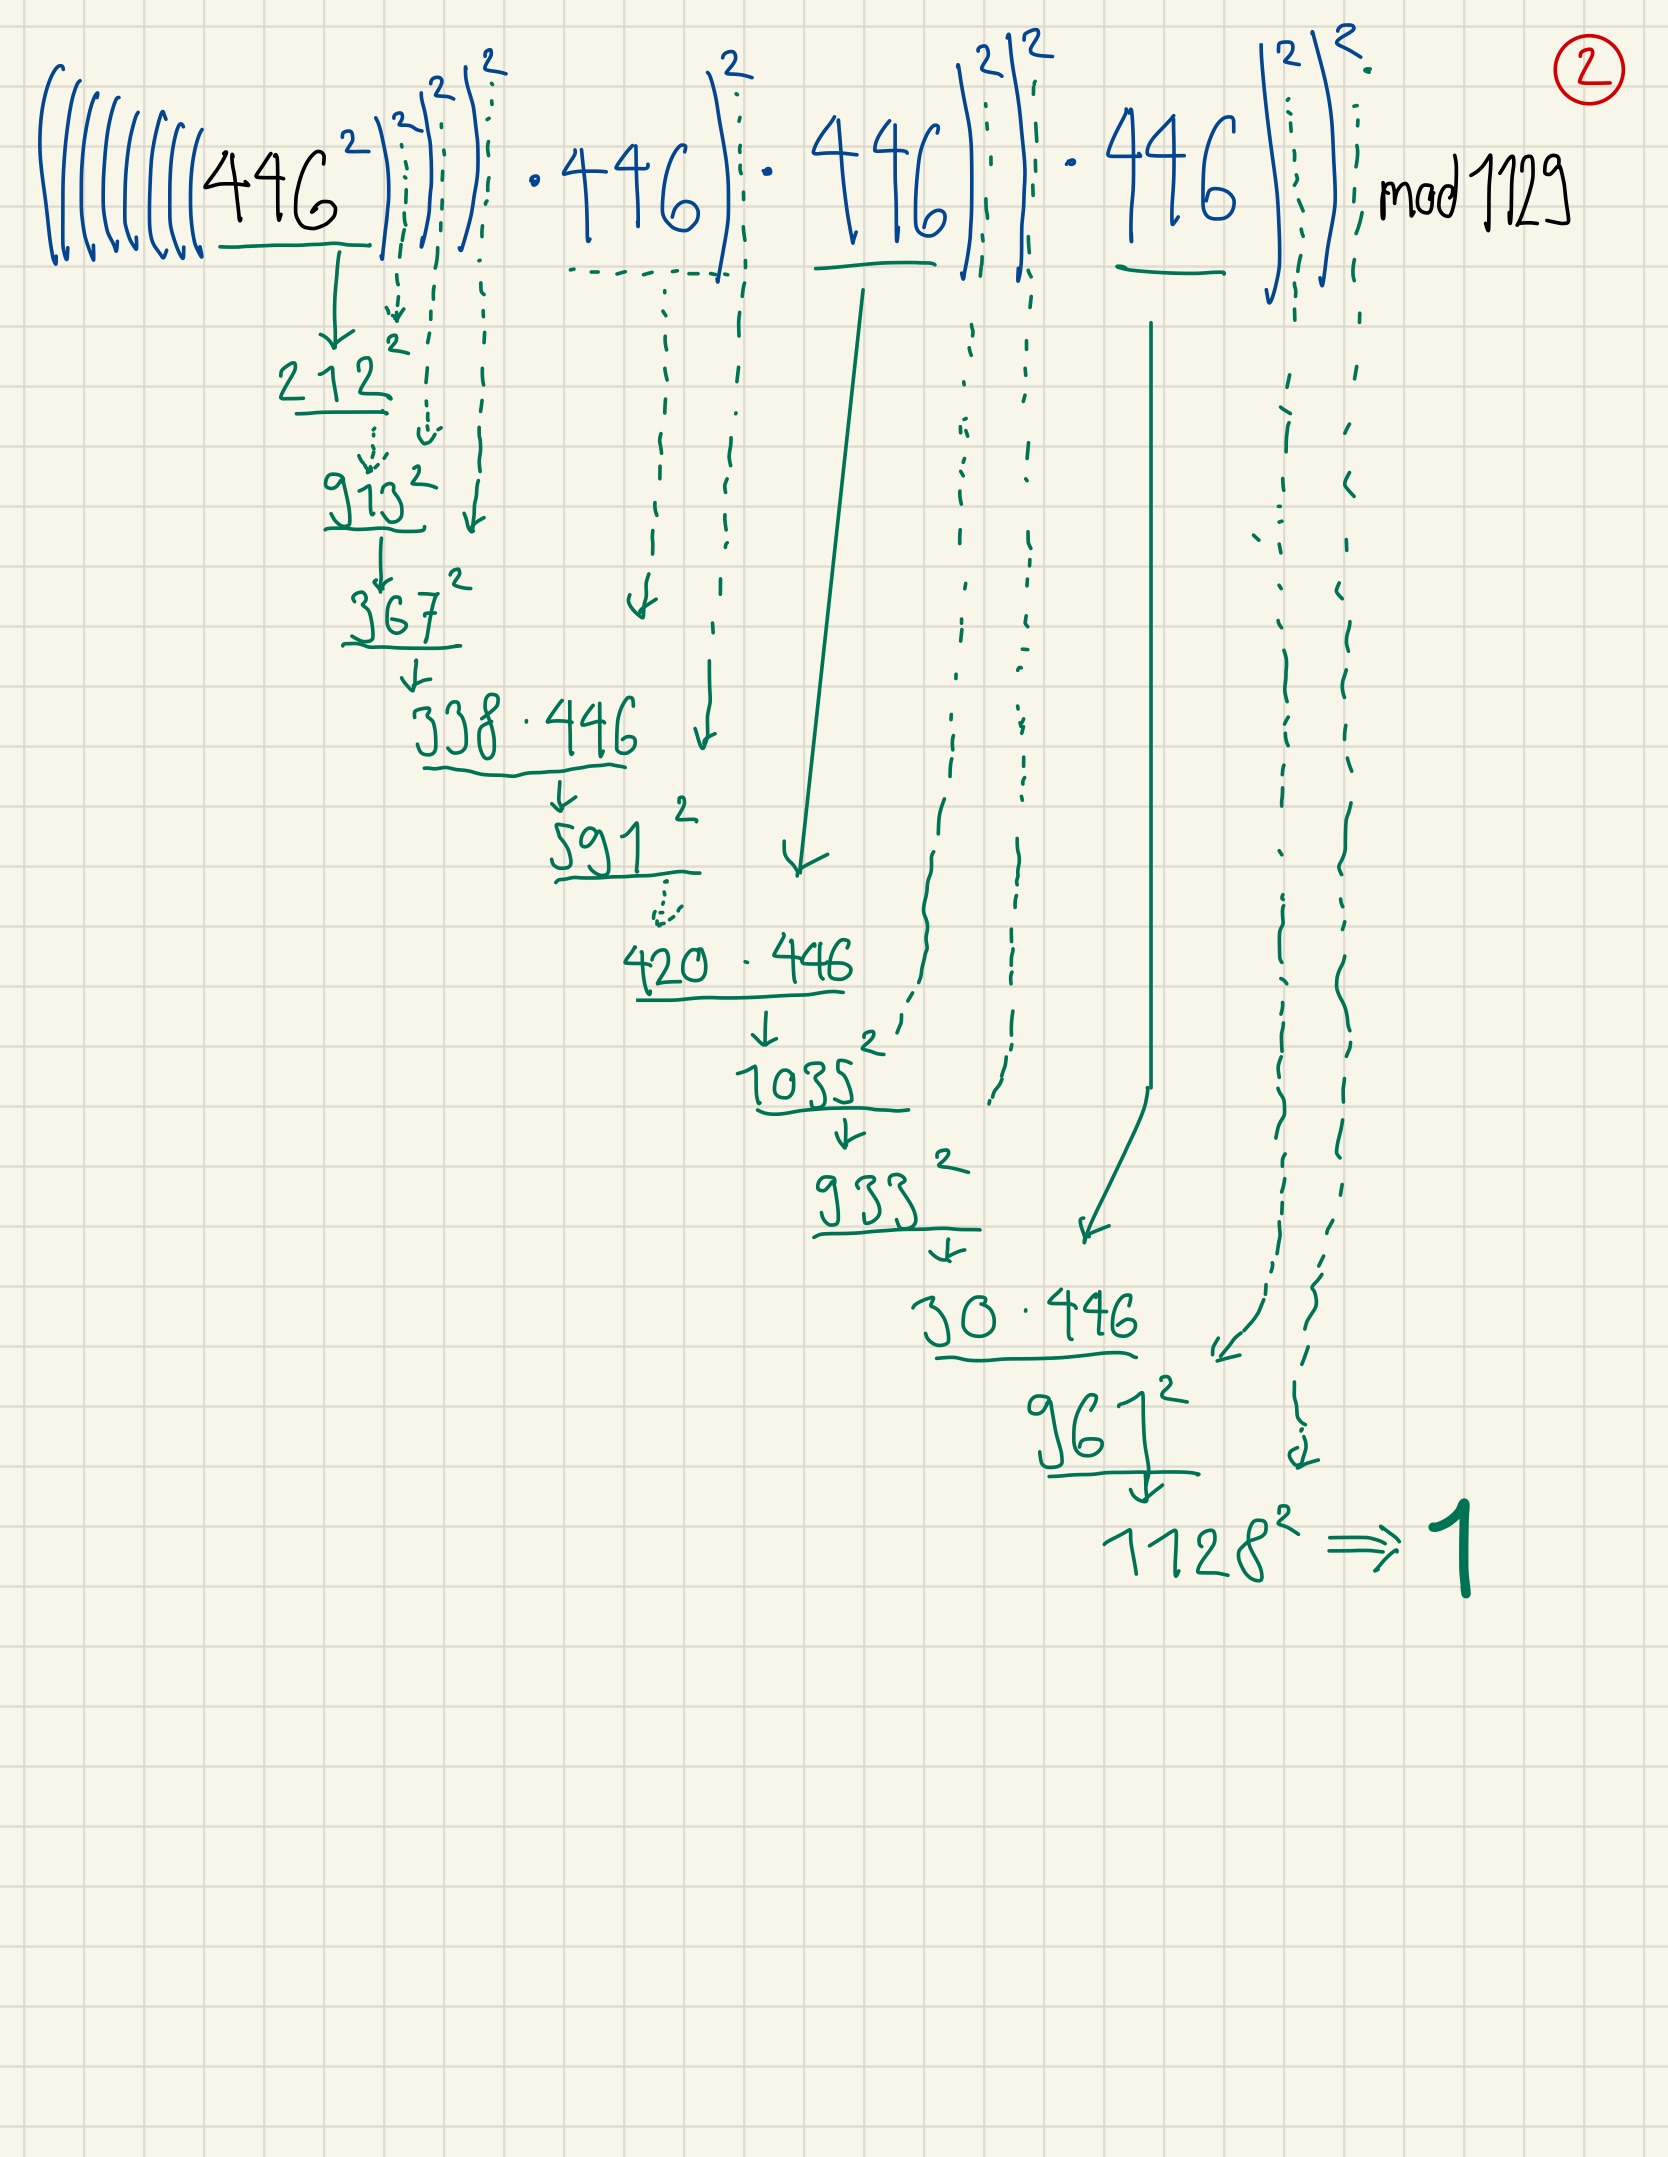 ((((((((446²)²)²)² · 446)² · 446)²)² · 446)²)² · mod 1129
②
212²
913²
367²
338 · 446
591²
420 · 446
1035²
933²
30 · 446
961²
1128² ⇒ 1